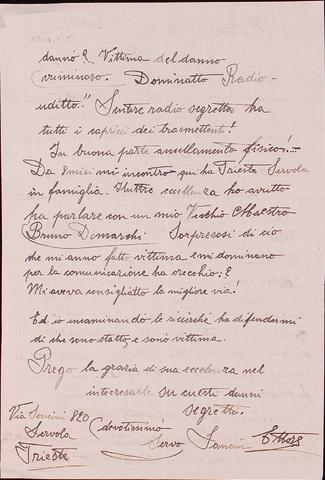 dannó? Vittima del danno
criminoso. Dominatto Radio-
uditto!! Sentire radio segretta ha
tutti i caprici dei trasmettenti!
In buona parte anullamento fisico!-
Da 8 misi mi incontro qui ha Trieste Servola
in famiglia. Inuttre eccelenza ho avutto
ha parlare con un mio Vechio Maestro
Bruno Demarchi Sorpresosi di ciò
che mi anno fatto vittima e mi dominano
per la comunicazione ha orechio;?
Mi aveva consigliatto la migliore via!
Ed'io incaminando le ricierche ha difendermi
di che sono statto, e sono vittima.
Prego la grazia di sua eccelenza nel
interesarle su questi danni
segretto.
Via Soncini 820
Servola
Trieste
devotissimó
Servo Sancin Ettore